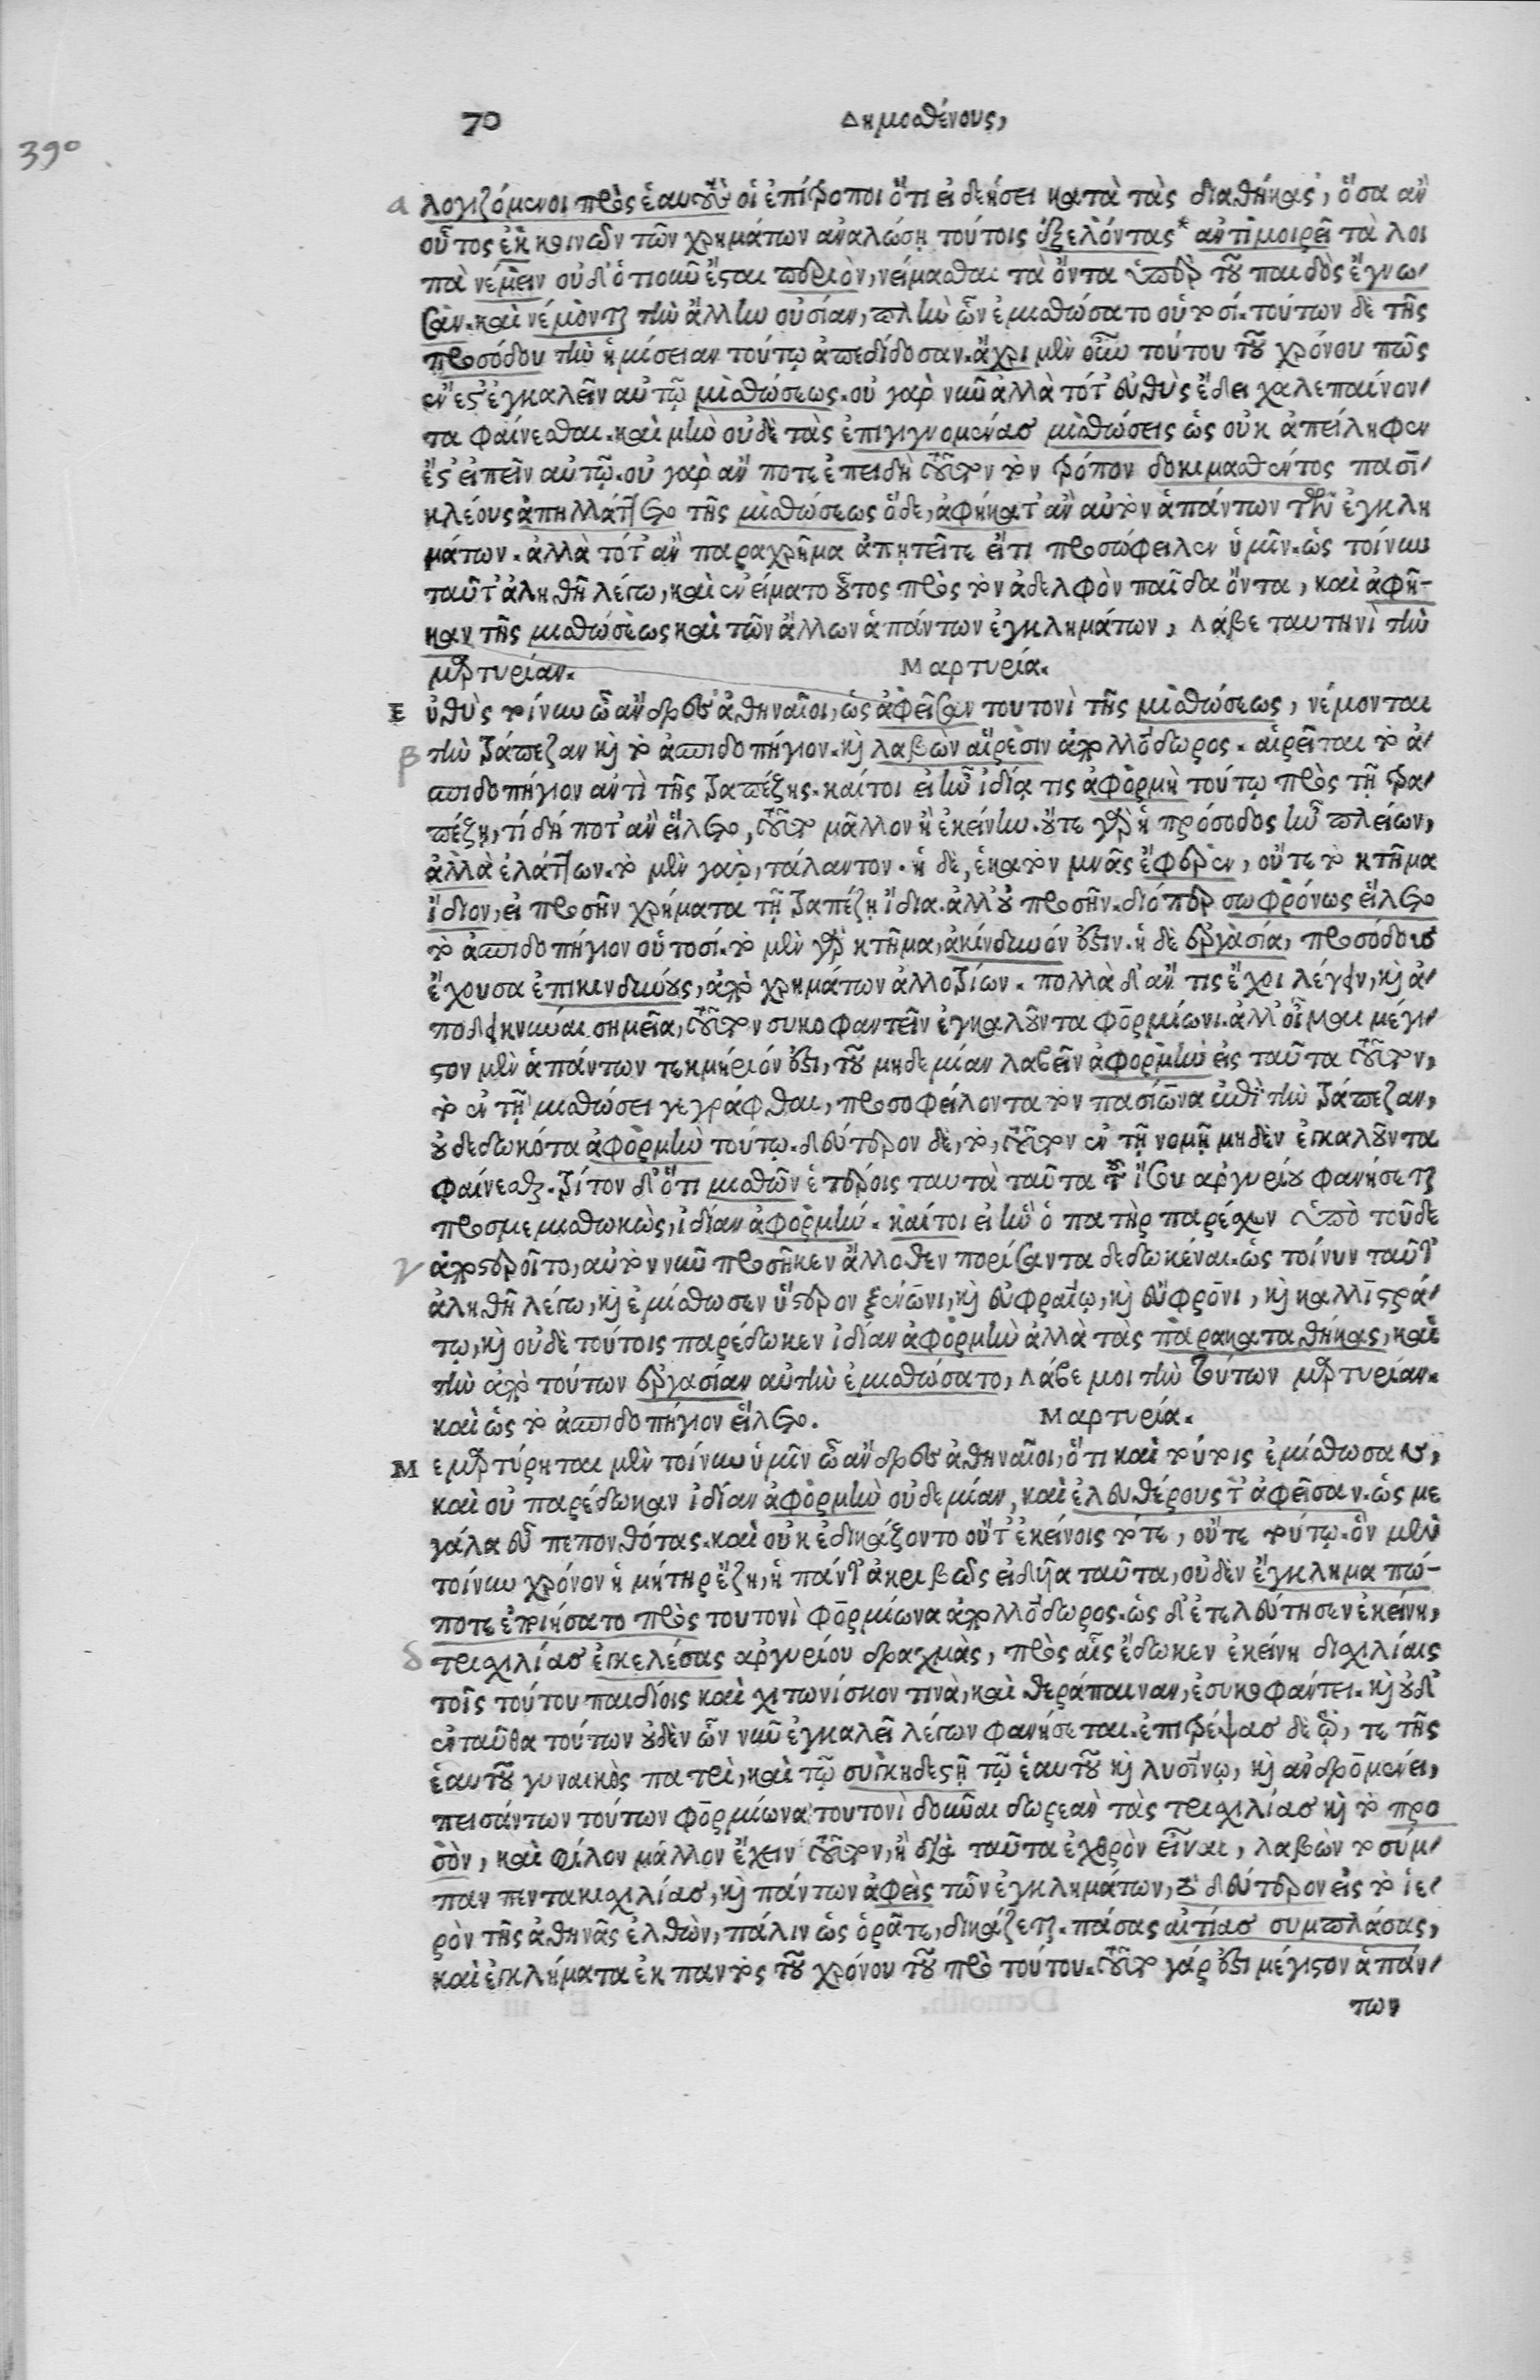 70 Δημοσθένους,
390
α λογιζόμενοι πρὸς ἑαυτοὺς οἱ ἐπίτροποι ὅτι εἰ δεήσει κατὰ τὰς διαθήκας, ὅσα ἂν
οὗτος ἐκ κοινῶν τῶν χρημάτων ἀναλώσῃ τούτοις ἐξελόντας* ἀντιμοιρεὶ τὰ λοι
πὰ νέμειν οὐδ' ὁτιοῦν ἔσται περιὸν, νείμασθαι τὰ ὄντα ὑπὲρ τοῦ παιδὸς ἔγνω-
σαν. καὶ νέμονται τὴν ἄλλην οὐσίαν, πλὴν ὧν ἐμισθώσατο οὑτοσί. τούτων δὲ τῆς
προσόδου τὴν ἡμίσειαν τούτῳ ἀπεδίδοσαν. ἄχρι μὲν οὖν τούτου τοῦ χρόνου πῶς
ἔνεστ' ἐγκαλεῖν αὐτῷ μισθώσεως. οὐ γὰρ νῦν ἀλλὰ τότ' εὐθὺς ἔδει χαλεπαίνον-
τα φαίνεσθαι. καὶ μὴν οὐδὲ τὰς ἐπιγιγνομένας μισθώσεις ὡς οὐκ ἀπείληφεν
ἔστ' εἰπεῖν αὐτῷ. οὐ γὰρ ἄν ποτε ἐπειδὴ τοῦτον τὸν τρόπον δοκιμασθέντος πασι-
κλέους ἀπηλλάττετο τῆς μισθώσεως ὅδε, ἀφήκατ' ἂν αὐτὸν ἁπάντων τῶν ἐγκλη
μάτων. ἀλλὰ τότ' ἂν παραχρῆμα ἀπῃτεῖτε εἴ τι προσώφειλεν ὑμῖν. ὡς τοίνυν
ταῦτ' ἀληθῆ λέγω, καὶ ἐνείματο οὗτος πρὸς τὸν ἀδελφὸν παῖδα ὄντα, καὶ ἀφῆ-
καν τῆς μισθώσεως καὶ τῶν ἄλλων ἁπάντων ἐγκλημάτων, λάβε ταυτηνὶ τὴν
μαρτυρίαν. Μαρτυρία.
Εὐθὺς τοίνυν ὦ ἄνδρες ἀθηναῖοι, ὡς ἀφεῖσαν τουτονὶ τῆς μισθώσεως, νέμονται
β τὴν τράπεζαν καὶ τὸ ἀσπιδοπήγιον. καὶ λαβὼν αἵρεσιν ἀπολλόδωρος. αἱρεῖται τὸ ἀ-
σπιδοπήγιον ἀντὶ τῆς τραπέζης. καίτοι εἰ ἦν ἰδία τις ἀφορμὴ τούτῳ πρὸς τῇ τρα-
πέζῃ, τί δή ποτ' ἂν εἵλετο, τοῦτο μᾶλλον ἢ ἐκείνην. οὔτε γὰρ ἡ πρόσοδος ἦν πλείων,
ἀλλὰ ἐλάττων. τὸ μὲν γὰρ, τάλαντον. ἡ δὲ, ἑκατὸν μνᾶς ἔφερεν, οὔτε τὸ κτῆμα
ἴδιον, εἰ προσῆν χρήματα τῇ τραπέζῃ ἴδια. ἀλλ' οὐ προσῆν. διόπερ σωφρόνως εἵλετο
τὸ ἀσπιδοπήγιον οὑτοσί. τὸ μὲν γὰρ κτῆμα, ἀκίνδυνόν ἐστιν. ἡ δὲ ἐργασία, προσόδους
ἔχουσα ἐπικινδύνους, ἀπὸ χρημάτων ἀλλοτρίων. πολλὰ δ' ἄν τις ἔχοι λέγειν, καὶ ἀ-
ποδεικνύναι σημεῖα, τοῦτον συκοφαντεῖν ἐγκαλοῦντα φορμίωνι. ἀλλ' οἶμαι μέγι-
στον μὲν ἁπάντων τεκμήριόν ἐστι, τοῦ μηδεμίαν λαβεῖν ἀφορμὴν εἰς ταῦτα τοῦτον,
τὸ ἐν τῇ μισθώσει γεγράφθαι, προσοφείλοντα τὸν πασίωνα ἐπὶ τὴν τράπεζαν,
οὐ δεδωκότα ἀφορμὴν τούτῳ. δεύτερον δὲ, τὸ, τοῦτον ἐν τῇ νομῇ μηδὲν ἐγκαλοῦντα
φαίνεσθαι. τρίτον δ' ὅτι μισθῶν ἑτέροις ταυτὰ ταῦτα τοῦ ἴσου ἀργυρίου φανήσεται
προσμεμισθωκὼς, ἰδίαν ἀφορμήν. καίτοι εἰ ἣν ὁ πατὴρ παρέσχεν ὑπὸ τοῦδε
γ ἀπεστερεῖτο, αὐτὸν νῦν προσῆκεν ἄλλοθεν πορίσαντα δεδωκέναι. ὡς τοίνυν ταῦτ'
ἀληθῆ λέγω, καὶ ἐμίσθωσεν ὕστερον ξένωνι, καὶ εὐφραίῳ, καὶ εὔφρονι, καὶ καλλιστρά-
τῳ, καὶ οὐδὲ τούτοις παρέδωκεν ἰδίαν ἀφορμὴν ἀλλὰ τὰς παρακαταθήκας, καὶ
τὴν ἀπὸ τούτων ἐργασίαν αὐτὴν ἐμισθώσατο, λάβε μοι τὴν τούτων μαρτυρίαν.
καὶ ὡς τὸ ἀσπιδοπήγιον εἵλετο. Μαρτυρία.
Μεμαρτύρηται μὲν τοίνυν ὑμῖν ὦ ἄνδρες ἀθηναῖοι, ὅτι καὶ τούτοις ἐμίσθωσαν,
καὶ οὐ παρέδωκαν ἰδίαν ἀφορμὴν οὐδεμίαν, καὶ ἐλευθέρους τ' ἀφεῖσαν. ὡς με
γάλα εὖ πεπονθότας. καὶ οὐκ ἐδικάζοντο οὔτ' ἐκείνοις τότε, οὔτε τούτῳ. ὃν μὲν
τοίνυν χρόνον ἡ μήτηρ ἔζη, ἡ πάντ' ἀκριβῶς εἰδυῖα ταῦτα, οὐδὲν ἔγκλημα πώ-
ποτε ἐποιήσατο πρὸς τουτονὶ φορμίωνα ἀπολλόδωρος. ὡς δ' ἐτελεύτησεν ἐκείνη,
δ τρισχιλίας ἐγκαλέσας ἀργυρίου δραχμὰς, πρὸς αἷς ἔδωκεν ἐκείνη δισχιλίαις
τοῖς τούτου παιδίοις καὶ χιτωνίσκον τινὰ, καὶ θεράπαιναν, ἐσυκοφάντει. καὶ οὐδ'
ἐνταῦθα τούτων οὐδὲν ὧν νῦν ἐγκαλεῖ λέγων φανήσεται. ἐπιτρέψας δὲ τῷ, τε τῆς
ἑαυτοῦ γυναικὸς πατρὶ, καὶ τῷ συγκηδεστῇ τῷ ἑαυτοῦ καὶ λυσίνῳ, καὶ ἀνδρομένει,
πεισάντων τούτων φορμίωνα τουτονὶ δοῦναι δωρεὰν τὰς τρισχιλίας καὶ τὸ προ
σὸν, καὶ φίλον μᾶλλον ἔχειν τοῦτον, ἢ διὰ ταῦτα ἐχθρὸν εἶναι, λαβὼν τὸ σύμ-
παν πεντακισχιλίας, καὶ πάντων ἀφεὶς τῶν ἐγκλημάτων, τὸ δεύτερον εἰς τὸ ἱε-
ρὸν τῆς ἀθηνᾶς ἐλθὼν, πάλιν ὡς ὁρᾶτε, δικάζεται. πάσας αἰτίας συμπλάσας,
καὶ ἐγκλήματα ἐκ παντὸς τοῦ χρόνου τοῦ πρὸ τούτου. τοῦτο γάρ ἐστι μέγιστον ἁπάν-
των